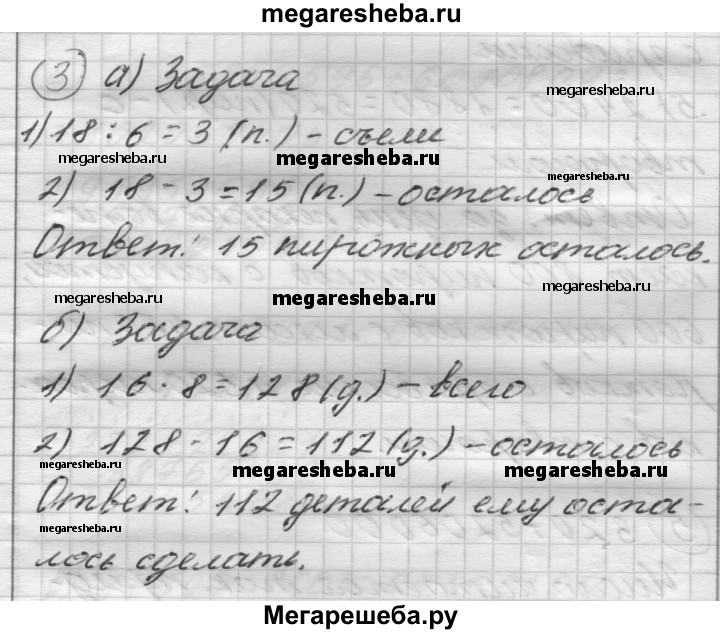 megaresheba.ru
3 а) Задача
megaresheba.ru
1) 18 : 6 = 3 (п.) - съели
megaresheba.ru megaresheba.ru megaresheba.ru
2) 18 - 3 = 15 (п.) - осталось
Ответ: 15 пирожных осталось.
megaresheba.ru megaresheba.ru megaresheba.ru
б) Задача
1) 16 · 8 = 128 (д.) - всего
2) 128 - 16 = 112 (д.) - осталось
megaresheba.ru megaresheba.ru megaresheba.ru
Ответ: 112 деталей ему оста-
megaresheba.ru
лось сделать.
Мегарешеба.ру